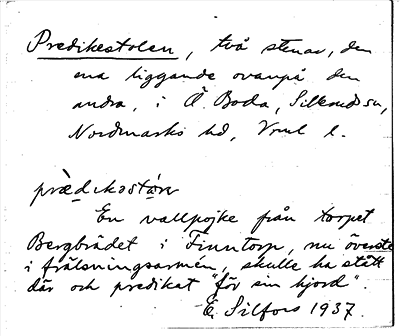 Predikestolen, två stenar, den
ena liggande ovanpå den
andra, i Ö. Boda, Silbodals sn,
Nordmarks hd, Vrml l.
En vallpojke från torpet
Bergbrädet i Finntorp, nu överste
i frälsningsarmén, skulle ha stått
där och predikat "för sin hjord".
E. Silfors 1937.